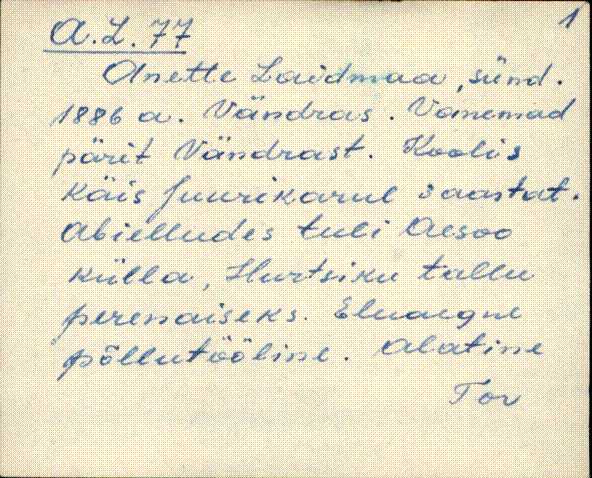 1
A.L. 77
Anette Laidmaa, sünd.
1886 a. Vändras. Vanemad
pärit Vändrast. Koolis
käis Juurikarul 3 aastat.
Abielludes tuli Aesoo
külla, Hurtsiku tallu
perenaiseks. Eluaegne
põllutööline. Alatine
Tor